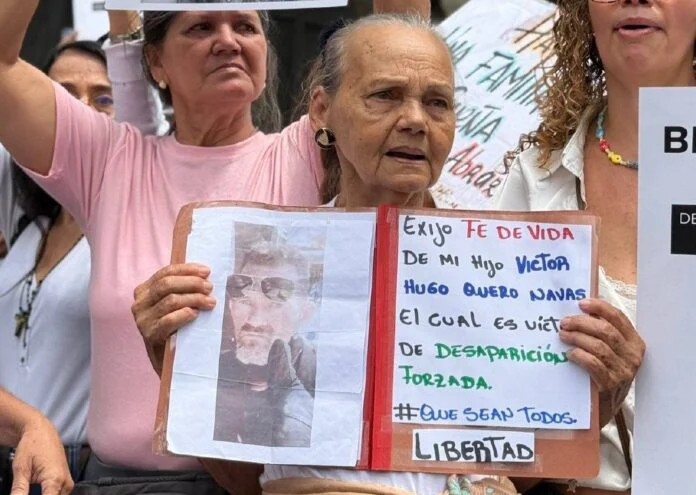 EXIJO FE DE VIDA
DE MI HIJO VICTOR
HUGO QUERO NAVAS
EL CUAL ES VÍCT
DE DESAPARICIÓN
FORZADA.
#QUE SEAN TODOS.
LIBERTAD
UNA FAMILI
ABRA
DE